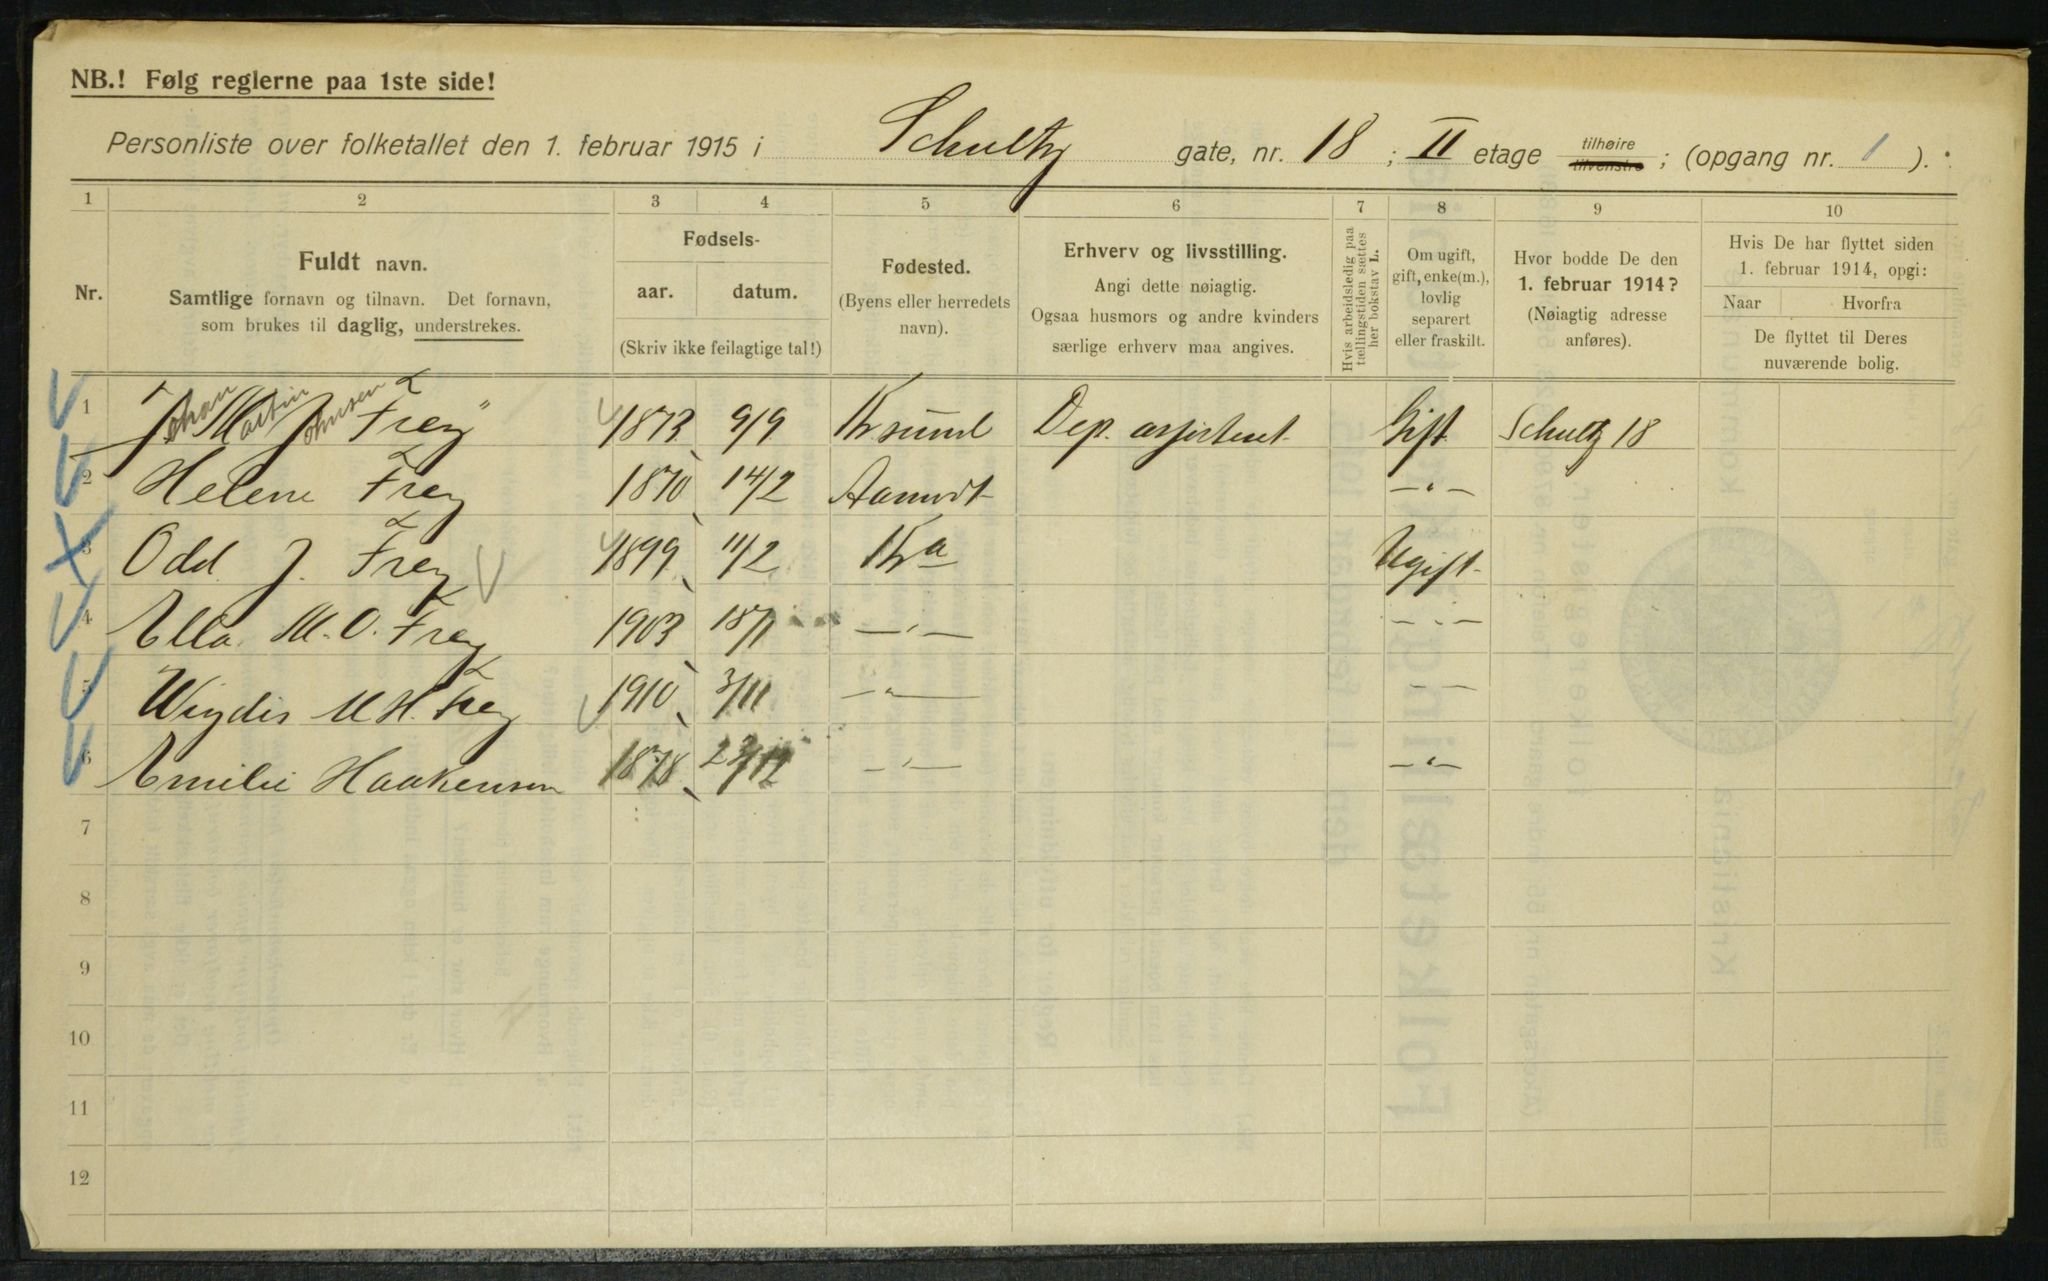 NB.! Følg reglerne paa 1ste side!
Personliste over folketallet den 1. februar 1915 i Schultz gate, nr. 18 ; II etage tilhøire tilvenstre ; (opgang nr. 1 ).
1 2 3 4 5 6 7 8 9 10
Nr.
Fuldt navn.
Samtlige fornavn og tilnavn. Det fornavn,
som brukes til daglig, understrekes.
Fødsels-
aar. datum.
(Skriv ikke feilagtige tal!)
Fødested.
(Byens eller herredets
navn).
Erhverv og livsstilling.
Angi dette nøiagtig.
Ogsaa husmors og andre kvinders
særlige erhverv maa angives.
Hvis arbeidsledig paa
tællingstiden sættes
her bokstav L.
Om ugift,
gift, enke(m.),
lovlig
separert
eller fraskilt.
Hvor bodde De den
1. februar 1914?
(Nøiagtig adresse
anføres).
Hvis De har flyttet siden
1. februar 1914, opgi:
Naar Hvorfra
De flyttet til Deres
nuværende bolig.
1 Johan Martin Johnsen Frey 1873 9/9 Krsund Dep. assistent Gift Schultz 18
2 Helene Frey 1870 14/2 — " —
3 Odd J. Frey 1899 11/2 Kra Ugift
4 Ella M. O. Frey 1903 18/1 — " — — " —
5 Wigdis M H. Frey 1910 3/11 — " — — " —
6 Emilie Haakensen 1878 23/12 — " — — " —
7
8
9
10
11
12